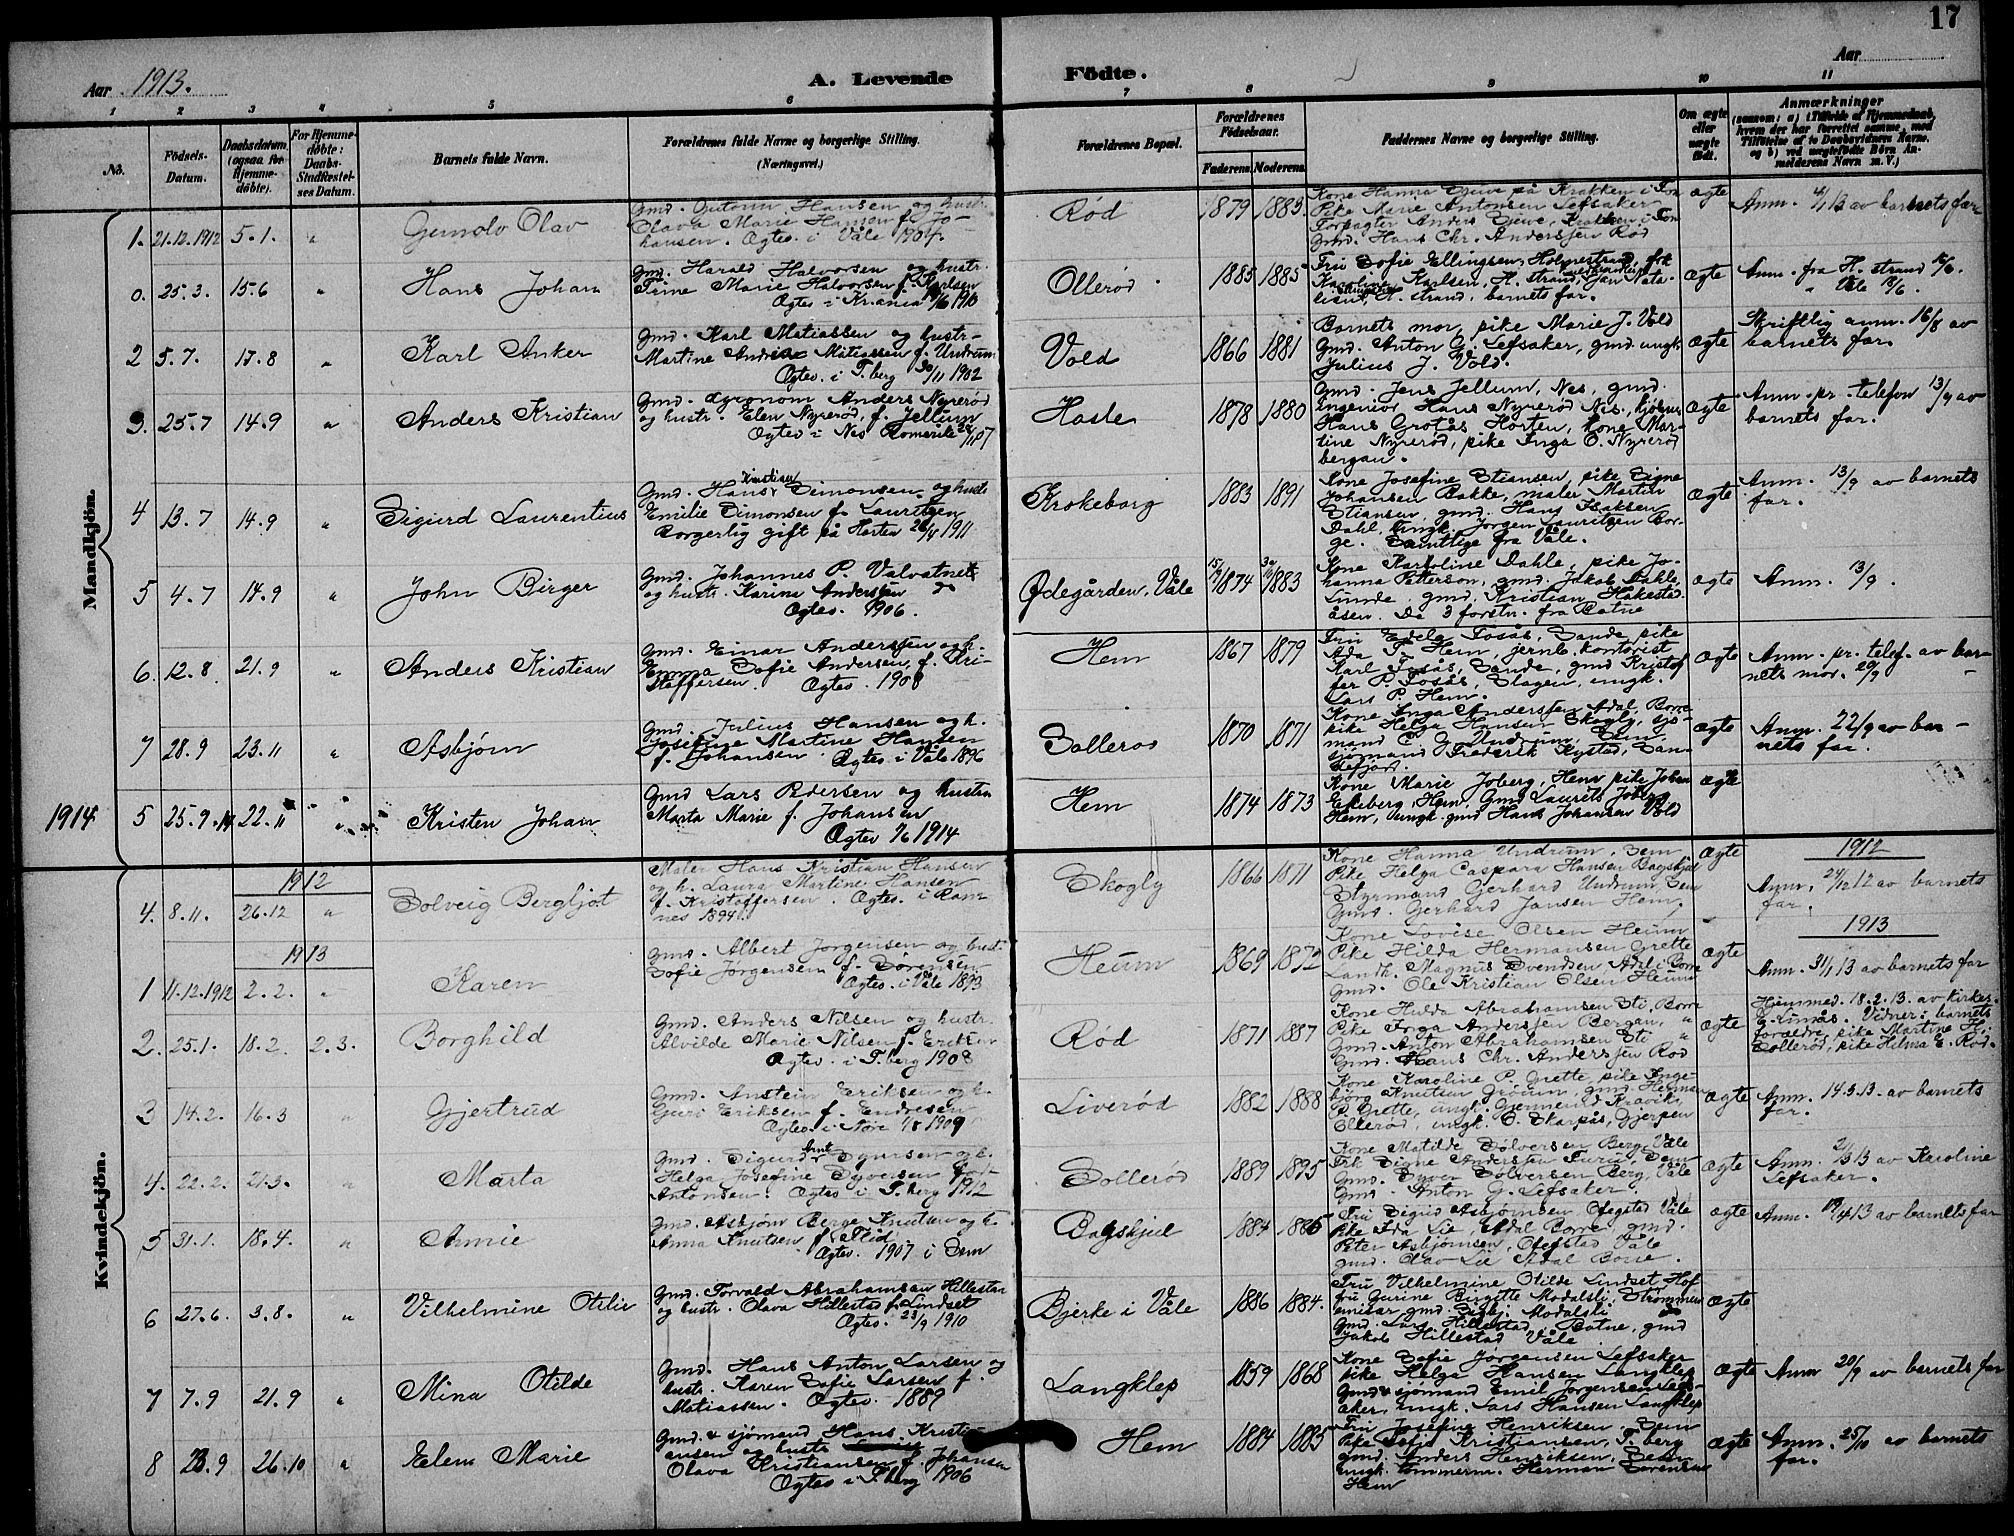 17
Aar 1913.
A. Levende Födte.
Aar
1 2 3 4 5 6 7 8 9 10 11
No.
Födsels-Datum.
Daabsdatum. (ogsaa for Hjemme-döbte).
For Hjemme-döbte: Daabs-Stadfæstel-ses Datum.
Barnets fulde Navn.
Forældrenes fulde Navne og borgerlige Stilling. (Næringsvei.)
Forældrenes Bopæl.
Forældrenes Födselsaar.
Faderens. Moderens.
Faddernes Navne og borgerlige Stilling.
Om ægte eller uægte födt.
Anmærkninger
Mandkjön.
1. 21.12.1912 5.1. " Gunolv Olav
Hansen og hustr.
Olava Marie Hansen f. Jo-
hansen. Ægtev. i Våle 1904.
Rød 1879 1883
Pike Marie Antonsen Lefsaker
Gmd. Hans Chr. Anderssen Rød
ægte
av barnets far
0. 25.3. 15.6 " Hans Johan
Gmd. Harald Halvorsen og hustr.
Trine Marie Halvorsen f. Karlsen
Ollerød 1885 1885
Fru Sofie Ellingsen, Holmestrand,
H. strand, barnets far.
ægte
Anm. fra H. strand
2 5.7. 17.8 " Karl Anker
Gmd. Karl Matiassen og hustr.
Martine Matiassen f. Undrum
Ægtev. i T.berg 30/11 1902
Vold 1866 1881
Barnets mor, pike Marie J. Vold
Gmd. Anton G. Lefsaker, gmd. ungk.
Julius J. Vold.
ægte
Skriftlig anm. 16/8 av
barnets far.
3. 25.7 14.9 " Anders Kristian
Gmd. Anders Nyrerød
og hustr. Elen Nyrerød, f. Jellum
Ægtev. i Nes Romerike
1878 1880
Gmd. Jens Jellum, Nes, gmd.
ingeniør Hans Nyrerød Nes,
Hans Grotås Horten, kone Mar-
tine Nyrerød, pike Inga O. Nyrerød
bergan.
ægte
Anm. pr. telefon 13/9 av
barnets far.
4 13.7 14.9 " Sigurd Laurentius
Kristian
Gmd. Hans Simonsen og hustr.
Emilie Simonsen f. Lauritzen
Borgerlig gift på Horten 1911
Krokeborg 1883 1891
Kone Josefine Stiansen, pike Signe
Johansen Bakke, maler Martin
Stiansen, gmd. Hans Isaksen
Dahl, ungk. Jørgen Lauritzen Bor-
ge. Samtlige fra Våle.
ægte
Anm. 13/9 av barnets
far.
5 4.7 14.9 " John Birger
Gmd. Johannes P. Valvatne
og hustr. Karina Anderssen
Ægtev. 1906.
Ødegården, Våle 1874 1883
Kone Karoline Dahle, pike Jo-
hanna Petterson, gmd. Jakob Dahle
Lunde, gmd. Kristian Hakestad
åsen. De 3 forstn. fra Botne
ægte
Anm. 13/9.
6. 12.8 21.9 " Anders Kristian
Gmd. Einar Anderssen og h.
Emma Sofie Andersen, f. Kri-
stoffersen. Ægtev. 1908
Hem 1867 1879
Fru Edela Fosås, Sande, pike
Ada P. Hem, jernb. kontorist
Karl Fosås, Sande, gmd Kristof
fer P. Fosås, Slagen, ungk.
Lars P. Hem.
ægte
Anm. pr. telef. av bar-
nets mor. 20/9
7 28.9 23.11 " Asbjørn
Gmd. Julius Hansen og h.
Josefine Martine Hansen
f. Johansen. Ægtev. i Våle 1896
Sollerød 1870 1871
Kone Inga Anderssen Adal, Borre
pike Helga Hansen Skogly, sjø-
mand C. G. Undrum, Sem,
sjømand Frederik Nystad, San-
defjord.
ægte
Anm. 22/9 av bar-
nets far.
1914 5 25.9.14 22.11 " Kristen Johan
Gmd Lars Pedersen og hustru
Marta Marie f. Johansen
Ægtev 1914
Hem 1874 1873
Kone Marie Joberg, Hem, pike Johan
Ekeberg, Hem, Gmd Laurits Joberg
Hem, ungk. gmd Hans Johansen Vold
ægte
Kvindekjön.
1912
4. 8.11. 26.12 " Solveig Bergljot
Maler Hans Kristian Hansen
og h. Laura Martine Hansen
f. Kristoffersen. Ægtev. i Ram-
nes 1894.
Skogly 1866 1871
Kone Hanna Undrum, Sem
Pike Helga Caspara Hansen Bagskjul
Styrmand Gerhard Undrum, Sem
Gmd. Gerhard Jansen Hem.
ægte
1912
Anm. 24/12 12 av barnets
far.
1913
1 11.12.1912 2.2. " Karen
Gmd. Albert Jørgensen og hustr.
Sofie Jørgensen f. Sørensen
Ægtev. i Våle 1893
Heum 1869 1872
Kone Lovise Olsen Heum
Pike Hilda Hermansen Grette
Landh. Magnus Svendsen, Adal i Borre
Gmd. Ole Kristian Olsen Heum
ægte
1913
Anm. 31/1 13 av barnets far
2. 25.1. 18.2. 2.3. Borghild
Gmd. Anders Nilsen og hustr.
Alvilde Marie Nilsen f. Eriksen
Ægtev. i T.berg 1908
Rød 1871 1887
Kone Hulda Abrahamsen Sti, Borre
Pike Inga Anderssen Bergan, "
Gmd. Anton Abrahamsen Sti "
Gmd. Hans Chr. Anderssen Rød
ægte
Hjemmed. 18.2.13. av kirkes.
G. Lunås. Vidner: barnets
forældre, pike Martine H.
Sollerød, pike Hilma E. Rød.
3 14.2. 16.3 " Gjertrud
Gmd. Anstein Eriksen og h.
Guro Eriksen f. Endresen
Ægtev. i Nore 1909
Liverød 1882 1888
Kone Karoline P. Grette, pike Inge-
bjørg Knutsen, gmd. Herman
P. Grette, ungk. Gunnerius Kravik,
Ollerød, ungk. O. Skarpås, Gjerpen
ægte
Anm. 14.3.13. av barnets
far.
4. 22.2. 21.3. " Marta
Arnt
Gmd. Sigurd Syversen og h.
Helga Josefine Syversen født
Antonsen. Ægtev. i T.berg 1912
Sollerød 1889 1895
Kone Matilde Sølversen Berg, Våle
Pik Signe Anderssen Furu, Sem
Gmd. Syver Sølversen Berg, Våle
Gmd. Anton G. Lefsaker.
ægte
Anm. 13 av Karoline
Lefsaker.
5 31.1. 18.4. " Annie
Gmd. Asbjørn Berge Knutsen og h.
Anna Knutsen f. Lid.
Ægtev. 1907 i Sem
Bagskjul 1884 1885
Fru Sigrid Asbjørnsen Ofegstad Våle
Pike Ida Lie, Adal Borre, gmd.
Peter Asbjørnsen, Ofegstad Våle
gmd. Olav Lie Adal Borre.
ægte
Anm. 13 av barnets far
6 27.6. 3.8. " Vilhelmine Otilie
Gmd. Torvald Abrahamsen Hillestad
og hustr. Olava Hillestad f. Lindset
Ægtev. 23/9 1910
Bjerke i Våle 1886 1884.
Fru Vilhelmine Otilde Lindset Hof
fru Gurine Birgitte Modalsli, Strømmen
emissær, gmd. Sigbj. Modalsli
Gmd. Lars Hillestad, Botne, gmd
Jakob Hillestad Våle
ægte
7 7.9 21.9 " Mina Otilde
Gmd. Hans Anton Larsen og
hustr. Karen Sofie Larsen f.
Matiassen. Ægtev. 1889
Langklep 1859 1868
Kone Sofie Jørgensen Lefsaker
pike Helga Hansen Langklep
Gmd & sjømand Emil Jørgensen Lefs-
aker, ungk. Lars Hansen Langklep
ægte
Anm 20/9 av barnets far
8 23.9 26.10 " Elena Marie
Gmd. & sjømand Hans Kristi-
ansen og hustr
Olava Kristiansen f. Johansen
Ægtev i T.berg 1906
Hem 1884 1885
Fru Josefine Henriksen, Sem
Pike Sofie Kristiansen, T.berg
gmd. Anders Henriksen, Sem
ungk. tømmerm. Herman Sørensen
Hem
ægte
Anm. 25/10 av barnets
far.